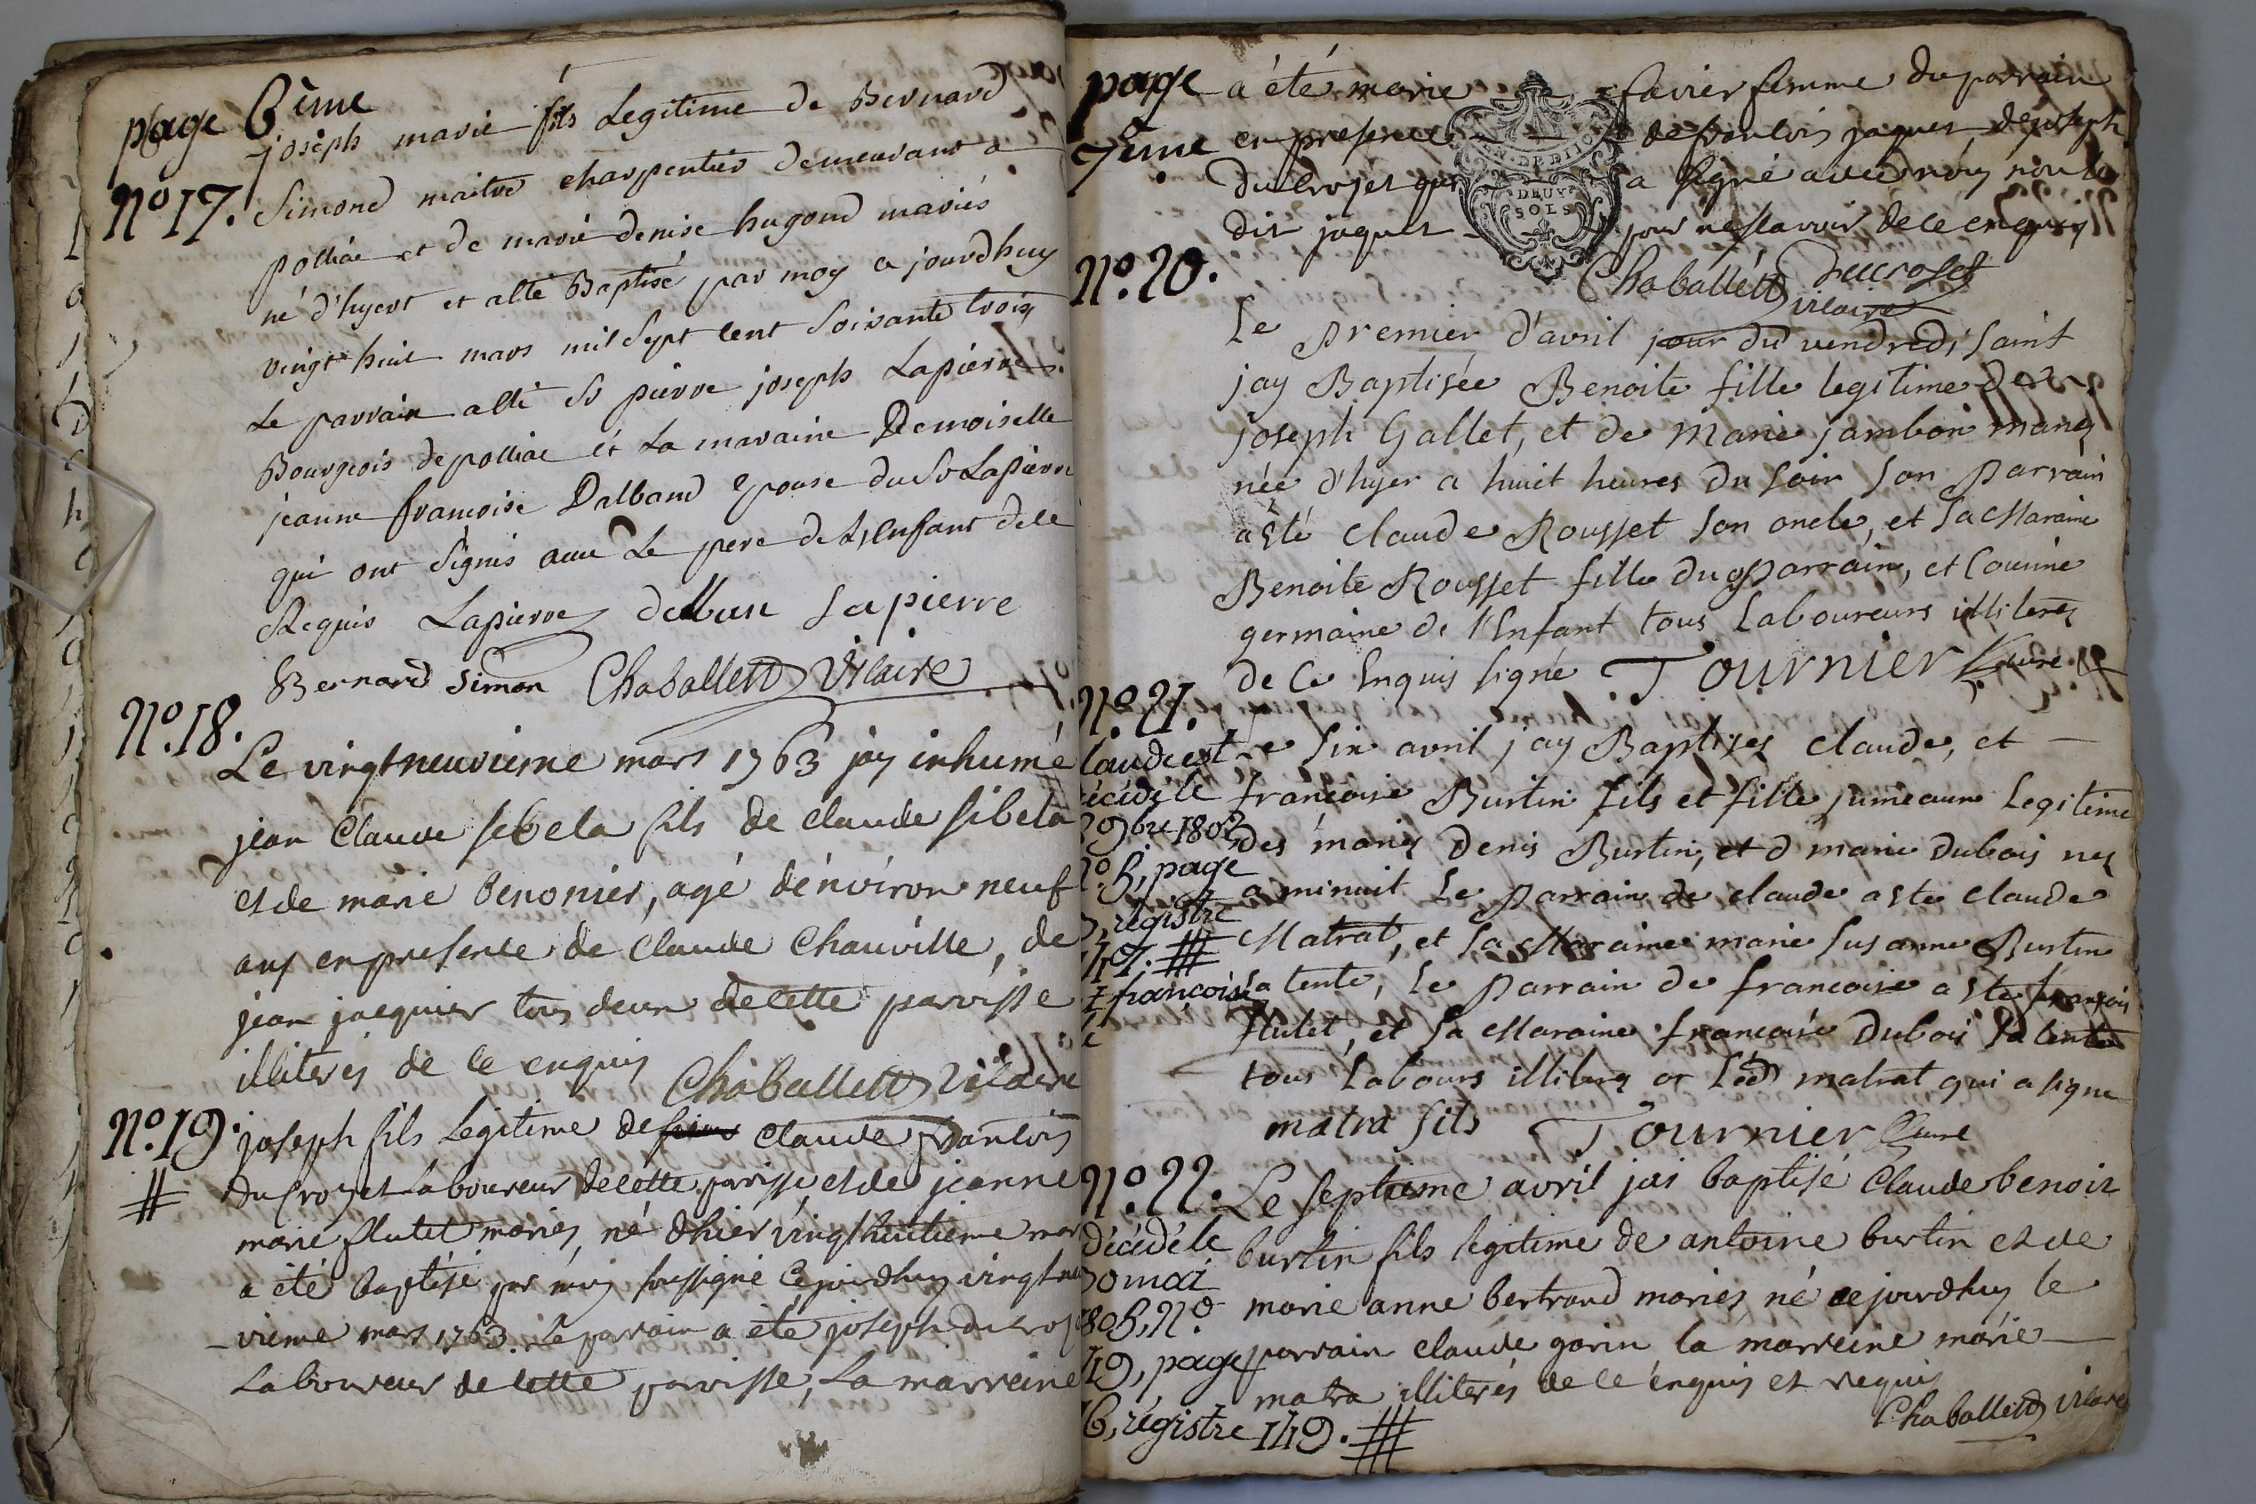 page 6ème
joseph marie fils Legitime de Bernard
No 17. Simond maitre charpentier demeurant a
polliac et de marie denise hugond mariés
né d'hyert et alté Baptisé par moy a jourdhuy
vingt huit mars mil Sept Cent Soixante trois
Le parrain alté Sr pierre joseph Lapierre
Bourgeois de polliac et La maraine Demoiselle
jeanne francoise Dalband epouse du Sr Lapierre
qui ont Signés avec Le pere de L'enfant de ce
Requis Lapierre dalban Lapierre
Bernard Simon Chaballett Vicaire
No. 18.
Le vingtneuvieme mars 1763 jay inhumé
jean Claude sibela fils de claude sibela
et de marie benonier, agé dénviron neuf
ans en presence de Claude Chauville, de
jean jacquier tous deux de cette parroisse
illiterés de ce enquis Chaballett Vicaire
No. 19. joseph fils Legitime de Claude francois
# du Crozet Laboureur de cette parisse et de jeanne
marie flutet mariés, né dhier vingthuitieme mar
a été baptisé par moy soussigné cejourdhuy vingt neu
vieme mars 1763. Le parrain a été joseph du croz
Laboureur de cette parroisse, La marreine
page a été marie favier femme du parrain
7ème en presence de francois jaques, de joseph
du Crozet qui a signé avec moy non le
dit jaques pour ne scavoir de ce enquis
Chaballett Ducroset
vicaire
No. 20.
Le premier d'avril jour du vendredi saint
jay Baptisée Benoite fille legitime de
joseph Gallet, et de Marie jambon mariés
née d'hyer a huit heures du soir son Parrain
a esté Claude Rousset son oncle, et sa Maraine
Benoite Rousset fille du Parrain, et Cousine
germaine de l'Enfant tous Laboureurs illiterés
de Ce Enquis signé Tournier Curé
No. 21.
Claude est Le six avril jay Baptisés claude, et
décédé le francoise Burtin fils et fille jumeaux Legitime
9bre 180 des mariés Denis Burtin, et d marie dubois nes
no. 5, page a minuit Le Parrain de claude a este claude
régistre Matrat, et sa Maraine marie susanne Burtin
147. # sa tente, le Parrain de francoise a este francois
françoise flutet, et sa Maraine francoise Dubois sa tente
tous Labours illiterés or led matrat qui a signe
matra fils Tournier Curé
No. 22. Le septieme avril jai baptisé Claude benoit
décédé le burtin fils legitime de antoine burtin et de
30 mai marie anne bertrand mariés né ce jourdhuy le
1805, No. parrain claude garin la marreine marie
49, page matra illiterés de ce énquis et requis
16, régistre 149. # Chaballett vicaire
EN. DEBITO
DEUX
SOLS